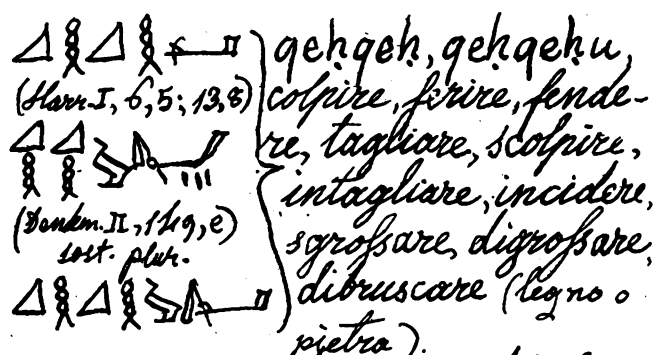 𓈎𓎛𓈎𓎛𓂡
(Harr. I, 6, 5; 13, 8)
𓈎𓎛𓈎𓎛
(Denkm. II, 149, e)
sost. plur.
𓈎𓎛𓈎𓎛
qeḥqeḥ, qeḥqeḥu,
colpire, ferire, fende-
re, tagliare, scolpire,
intagliare, incidere,
sgroſsare, digroſsare,
dibruscare (legno o
pietra).